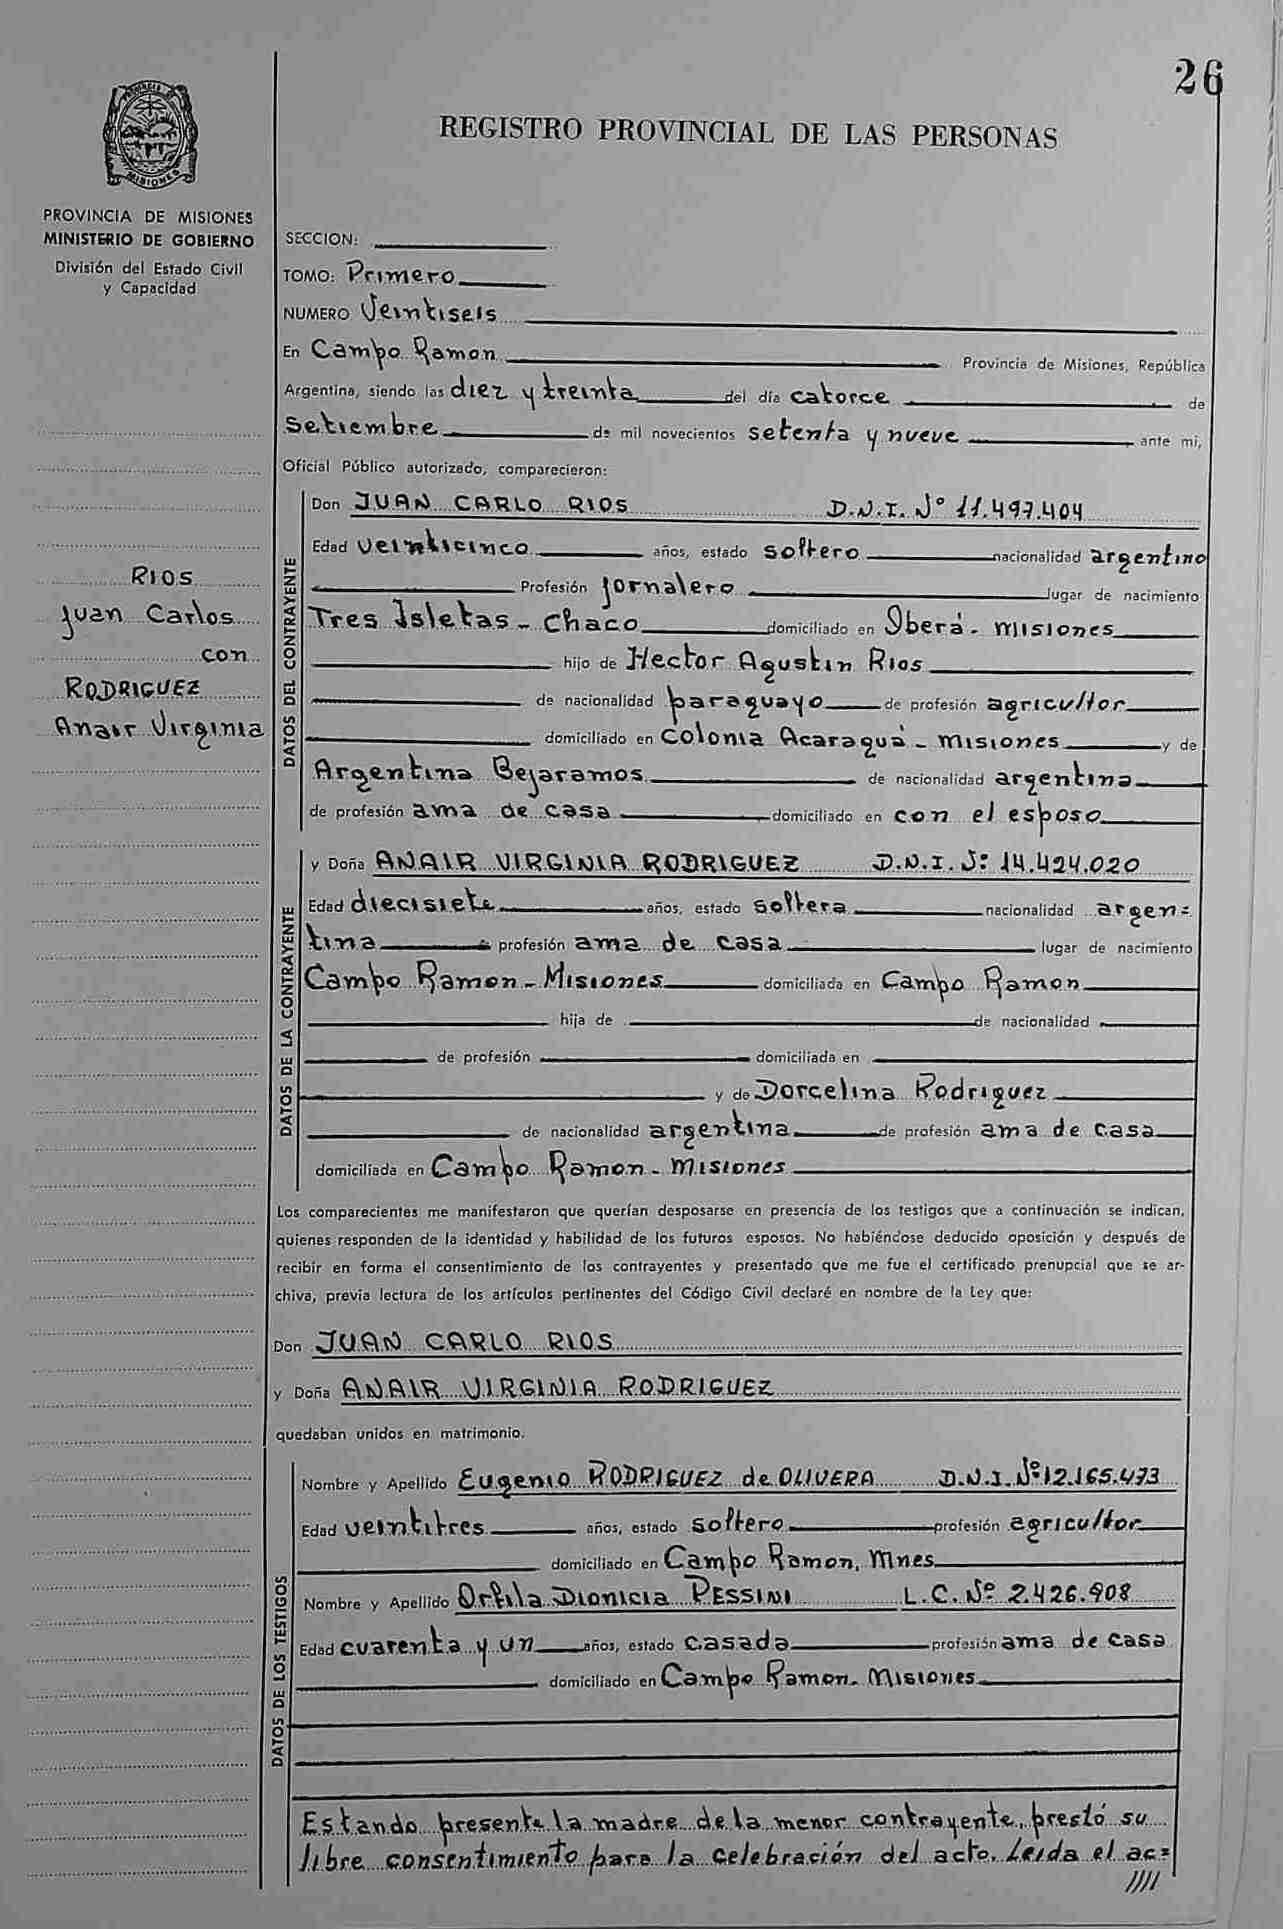 26
REGISTRO PROVINCIAL DE LAS PERSONAS
PROVINCIA DE MISIONES
MINISTERIO DE GOBIERNO
División del Estado Civil
y Capacidad
RIOS
Juan Carlos
con
RODRIGUEZ
Anair Virginia
SECCION:
TOMO: Primero
NUMERO Veintiseis
En Campo Ramon Provincia de Misiones, República
Argentina, siendo las diez y treinta del día catorce de
setiembre de mil novecientos setenta y nueve ante mi,
Oficial Público autorizado, comparecieron:
DATOS DEL CONTRAYENTE
Don JUAN CARLO RIOS D.N.I. Nº 11.497.404
Edad veinticinco años, estado soltero nacionalidad argentino
Profesión jornalero lugar de nacimiento
Tres Isletas - Chaco domiciliado en Iberá - misiones
hijo de Hector Agustin Rios
de nacionalidad paraguayo de profesión agricultor
domiciliado en Colonia Acaraguá - misiones y de
Argentina Bejaramos de nacionalidad argentina
de profesión ama de casa domiciliado en con el esposo
DATOS DE LA CONTRAYENTE
y Doña ANAIR VIRGINIA RODRIGUEZ D.N.I. Nº 14.424.020
Edad diecisiete años, estado soltera nacionalidad argen=
tina profesión ama de casa lugar de nacimiento
Campo Ramon - Misiones domiciliada en Campo Ramon
hija de de nacionalidad
de profesión domiciliada en
y de Dorcelina Rodriguez
de nacionalidad argentina de profesión ama de casa
domiciliada en Campo Ramon - misiones
Los comparecientes me manifestaron que querían desposarse en presencia de los testigos que a continuación se indican,
quienes responden de la identidad y habilidad de los futuros esposos. No habiéndose deducido oposición y después de
recibir en forma el consentimiento de los contrayentes y presentado que me fue el certificado prenupcial que se ar-
chiva, previa lectura de los artículos pertinentes del Código Civil declaré en nombre de la Ley que:
Don JUAN CARLO RIOS
y Doña ANAIR VIRGINIA RODRIGUEZ
quedaban unidos en matrimonio.
DATOS DE LOS TESTIGOS
Nombre y Apellido Eugenio RODRIGUEZ de OLIVERA D.N.I. Nº 12.165.473
Edad veintitres años, estado soltero profesión agricultor
domiciliado en Campo Ramon, Mnes
Nombre y Apellido Orfila Dionicia PESSINI L.C. Nº 2.426.908
Edad cuarenta y un años, estado casada profesión ama de casa
domiciliado en Campo Ramon - Misiones
Estando presente la madre de la menor contrayente, prestó su
libre consentimiento para la celebración del acto. Leida el ac=
////